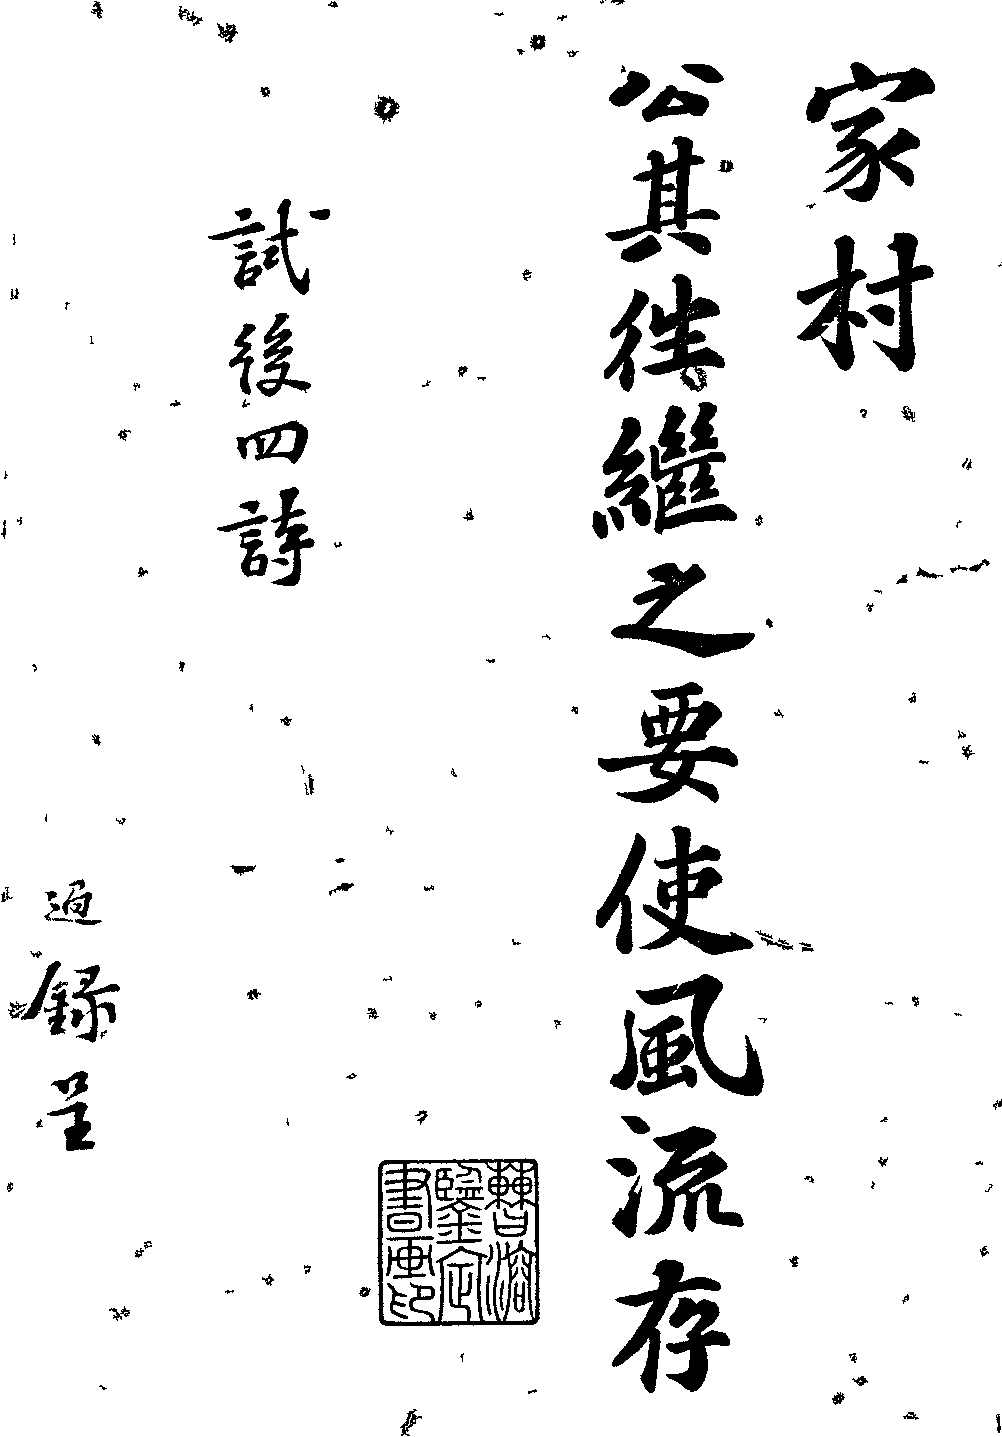 家村
公其徃繼之要使風流存
試後四詩
過録呈
曹溶
鑒定
書畫印